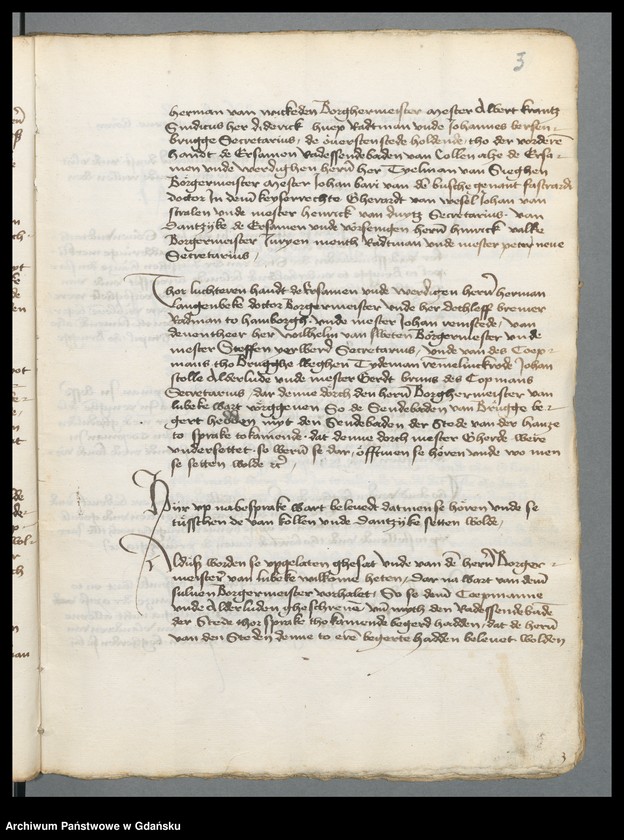 3
herman van wickeden Borghermeister Mester Albert krantz
Sindicus her diderick huep Radtman unde Johannes bersen-
brugge Secretarius, de overstenstede holdende, tho der vorderē
handt de Ersamen Radessendebaden van Collen alze de Ersa-
men unde werdighen herñ her Tyelman van
Borgermeister Mester Johan bari van dē busche genant fastrardi
doctor In dem keyserrechte Gherardt van wesel Johan van
stralen unde mester henrick van Secretarius. van
dantzike de Ersamen unde vorsenigen herñ hinrick valke
Borgermeister Juryen month Radtman unde mester peter neue
Secretarius,
Thor luchteren handt de Ersamen unde werdigen herñ herman
Langenbeke doctor Borgermeister unde her dethleff bremer
Radman to hamborgh. unde mester Johan reinstede, van
deventheer her Wilhelm van Borgermeister unde
mester Steffen Secretarius, unde van des Coep-
mans tho Brugghe weghen Tydeman Johan
stolle Alderlude unde mester Gerdt bruns des Copmans
Secretarius, dar denne dorch den herñ Borghermeister van
lubeke wart vorggeuen So de Sendebaden van Brugge be-
gert hedden myt den Sendebaden der Stede van der hanze
to sprake tokamende. dat denne dorch mester Gherde were
undersettet. so weren se dar, offtmen se horen unde wo men
se setten wolde
Hiir up nabesprake wart beleuedt datmen se horen unde se
tusschen de van kollen unde dantzike setten wolde,
Alduß worden se upgelaten ghesat unde van dē herñ Borger-
meisterē van lubeke heten, dar na wart van dem
suluen Borgermeister vorhalet, So se dem Coepmanne
unde Alderluden gheschreuē myth den Radessendebade
der Stede thor sprake tho kamende begerd hadden, dat de herñ
van den Steden denne to erē begerte hadden beleuet wolden
3
Archiwum Państwowe w Gdańsku